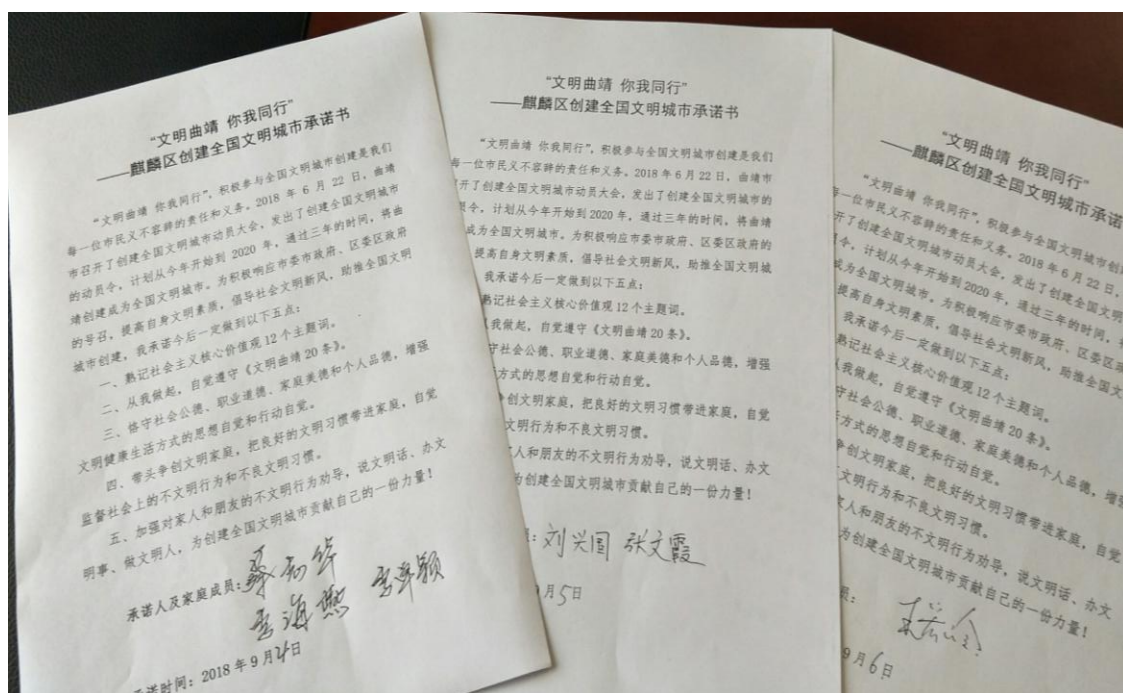 “文明曲靖 你我同行”
——麒麟区创建全国文明城市承诺书
“文明曲靖 你我同行”，积极参与全国文明城市创建是我们
每一位市民义不容辞的责任和义务。2018 年 6 月 22 日，曲靖
市召开了创建全国文明城市动员大会，发出了创建全国文明城市
的动员令，计划从今年开始到 2020 年，通过三年的时间，将曲
靖创建成为全国文明城市。为积极响应市委市政府、区委区政府
的号召，提高自身文明素质，倡导社会文明新风，助推全国文明
城市创建，我承诺今后一定做到以下五点：
一、熟记社会主义核心价值观 12 个主题词。
二、从我做起，自觉遵守《文明曲靖 20 条》。
三、恪守社会公德、职业道德、家庭美德和个人品德，增强
文明健康生活方式的思想自觉和行动自觉。
四、带头争创文明家庭，把良好的文明习惯带进家庭，自觉
监督社会上的不文明行为和不良文明习惯。
五、加强对家人和朋友的不文明行为劝导，说文明话、办文
明事、做文明人，为创建全国文明城市贡献自己的一份力量！
承诺人及家庭成员：
承诺时间：2018 年 9 月 日
“文明曲靖 你我同行”
——麒麟区创建全国文明城市承诺书
“文明曲靖 你我同行”，积极参与全国文明城市创建是我们
每一位市民义不容辞的责任和义务。2018 年 6 月 22 日，曲靖市
召开了创建全国文明城市动员大会，发出了创建全国文明城市的
员令，计划从今年开始到 2020 年，通过三年的时间，将曲靖
成为全国文明城市。为积极响应市委市政府、区委区政府的
提高自身文明素质，倡导社会文明新风，助推全国文明城
我承诺今后一定做到以下五点：
熟记社会主义核心价值观 12 个主题词。
从我做起，自觉遵守《文明曲靖 20 条》。
守社会公德、职业道德、家庭美德和个人品德，增强
方式的思想自觉和行动自觉。
争创文明家庭，把良好的文明习惯带进家庭，自觉
文明行为和不良文明习惯。
人和朋友的不文明行为劝导，说文明话、办文
为创建全国文明城市贡献自己的一份力量！
：刘兴国 张文霞
月5日
“文明曲靖 你我同行”
——麒麟区创建全国文明城市承诺
“文明曲靖 你我同行”，积极参与全国文明城市创
每一位市民义不容辞的责任和义务。2018 年 6 月 22 日，
召开了创建全国文明城市动员大会，发出了创建全国文明
员令，计划从今年开始到 2020 年，通过三年的时间，将
成为全国文明城市。为积极响应市委市政府、区委区政
提高自身文明素质，倡导社会文明新风，助推全国文
我承诺今后一定做到以下五点：
熟记社会主义核心价值观 12 个主题词。
从我做起，自觉遵守《文明曲靖 20 条》。
守社会公德、职业道德、家庭美德和个人品德，增强
方式的思想自觉和行动自觉。
争创文明家庭，把良好的文明习惯带进家庭，自觉
文明行为和不良文明习惯。
家人和朋友的不文明行为劝导，说文明话、办文
为创建全国文明城市贡献自己的一份力量！
员：
9 月6日